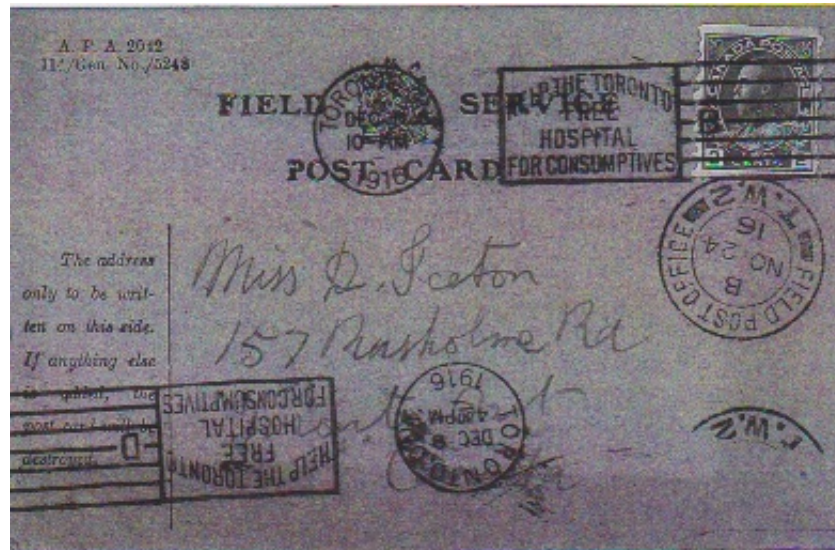 A. F. A. 2042
114/Gen. No./5248
FIELD SERVICE
POST CARD
TORONTO
DEC
10 AM
1916
HELP THE TORONTO
FREE
HOSPITAL
FOR CONSUMPTIVES
CANADA POSTAGE
FIELD POST OFFICE
T.W.2
B
NO 24
16
The address
only to be writ-
ten on this side.
If anything else
is added, the
post card will be
destroyed.
Miss D. Iceton
157 Rusholme Rd
TORONTO
DEC 8
4 PM
1916
HELP THE TORONTO
FREE
HOSPITAL
FOR CONSUMPTIVES
D
T.W.2